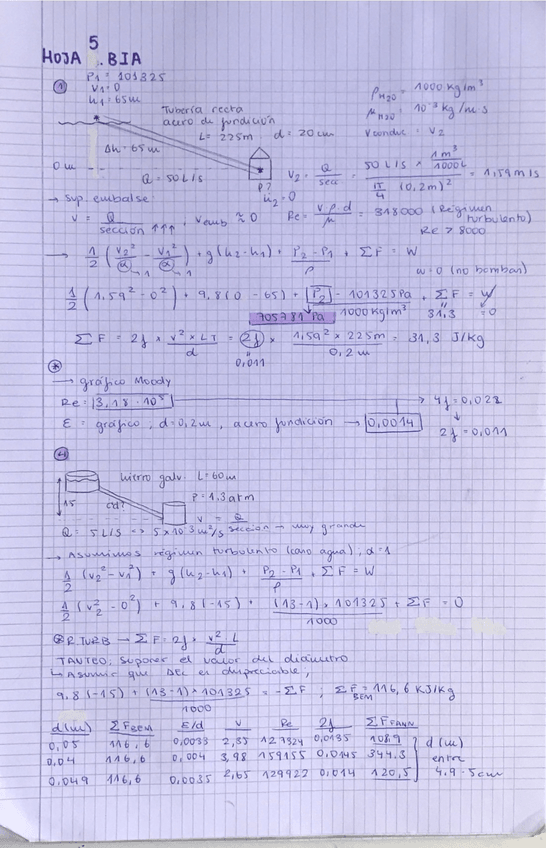 HOJA 5 BIA
① P1 = 101325
V1 = 0
h1 = 65m
Tubería recta
acero de fundición
L = 225m d = 20cm
ρH2O = 1000 kg/m³
μH2O = 10⁻³ kg/m·s
Vconduc = V2
Δh = 65m
0 m
Q = 50 L/S
P?
h2 = 0
V2 = Q/sec = 50 L/S × 1m³/1000L / π/4 (0,2m)² = 1,59 m/s
→ Sup. embalse:
V = Q/sección ↑↑↑ ; Vemb ≈ 0
Re = v·ρ·d/μ = 318000 (Régimen turbulento)
Re > 8000
→ 1/2 (V2²/α - V1²/α) + g(h2-h1) + P2-P1/ρ + ΣF = W
w=0 (no bomban)
1/2 (1,59² - 0²) + 9,8(0 - 65) + P2 - 101325Pa / 1000kg/m³ + ΣF = W
705781 Pa 31,3 = 0
ΣF = 2f × v² × LT / d = 2f × 1,59² × 225m / 0,2m = 31,3 J/kg
0,011
⊛
→ gráfico Moody
Re: 3,18 · 10⁵ → 4f = 0,022
ε = gráfico, d=0,2m, acero fundición → 0,0014 2f = 0,011
④
hierro galv. L=60m
15 cd? P = 1,3 atm
V = Q/sección → muy grande
Q = 5 L/S => 5×10⁻³ m³/s
→ Asumimos régimen turbulento (caso agua), α=1
1/2 (V2²-V1²) + g(h2-h1) + P2-P1/ρ + ΣF = W
1/2 (V2² - 0²) + 9,8(-15) + (1,3-1) × 101325 / 1000 + ΣF = 0
⊛ R.TURB → ΣF = 2f × v²·L/d
TANTEO, suponer el valor del diámetro
↳ Asumir que ΔEc es despreciable,
9,8(-15) + (1,3-1)×101325 / 1000 = -ΣF ; ΣFBEM = 116,6 KJ/Kg
d(m) ΣFBEM E/d V Re 2f ΣFFANN
0,05 116,6 0,0033 2,55 127324 0,0135 108,9
0,04 116,6 0,004 3,98 159155 0,0145 344,3
0,049 116,6 0,0035 2,65 129922 0,014 120,5
d(m)
entre
4,9 - 5cm